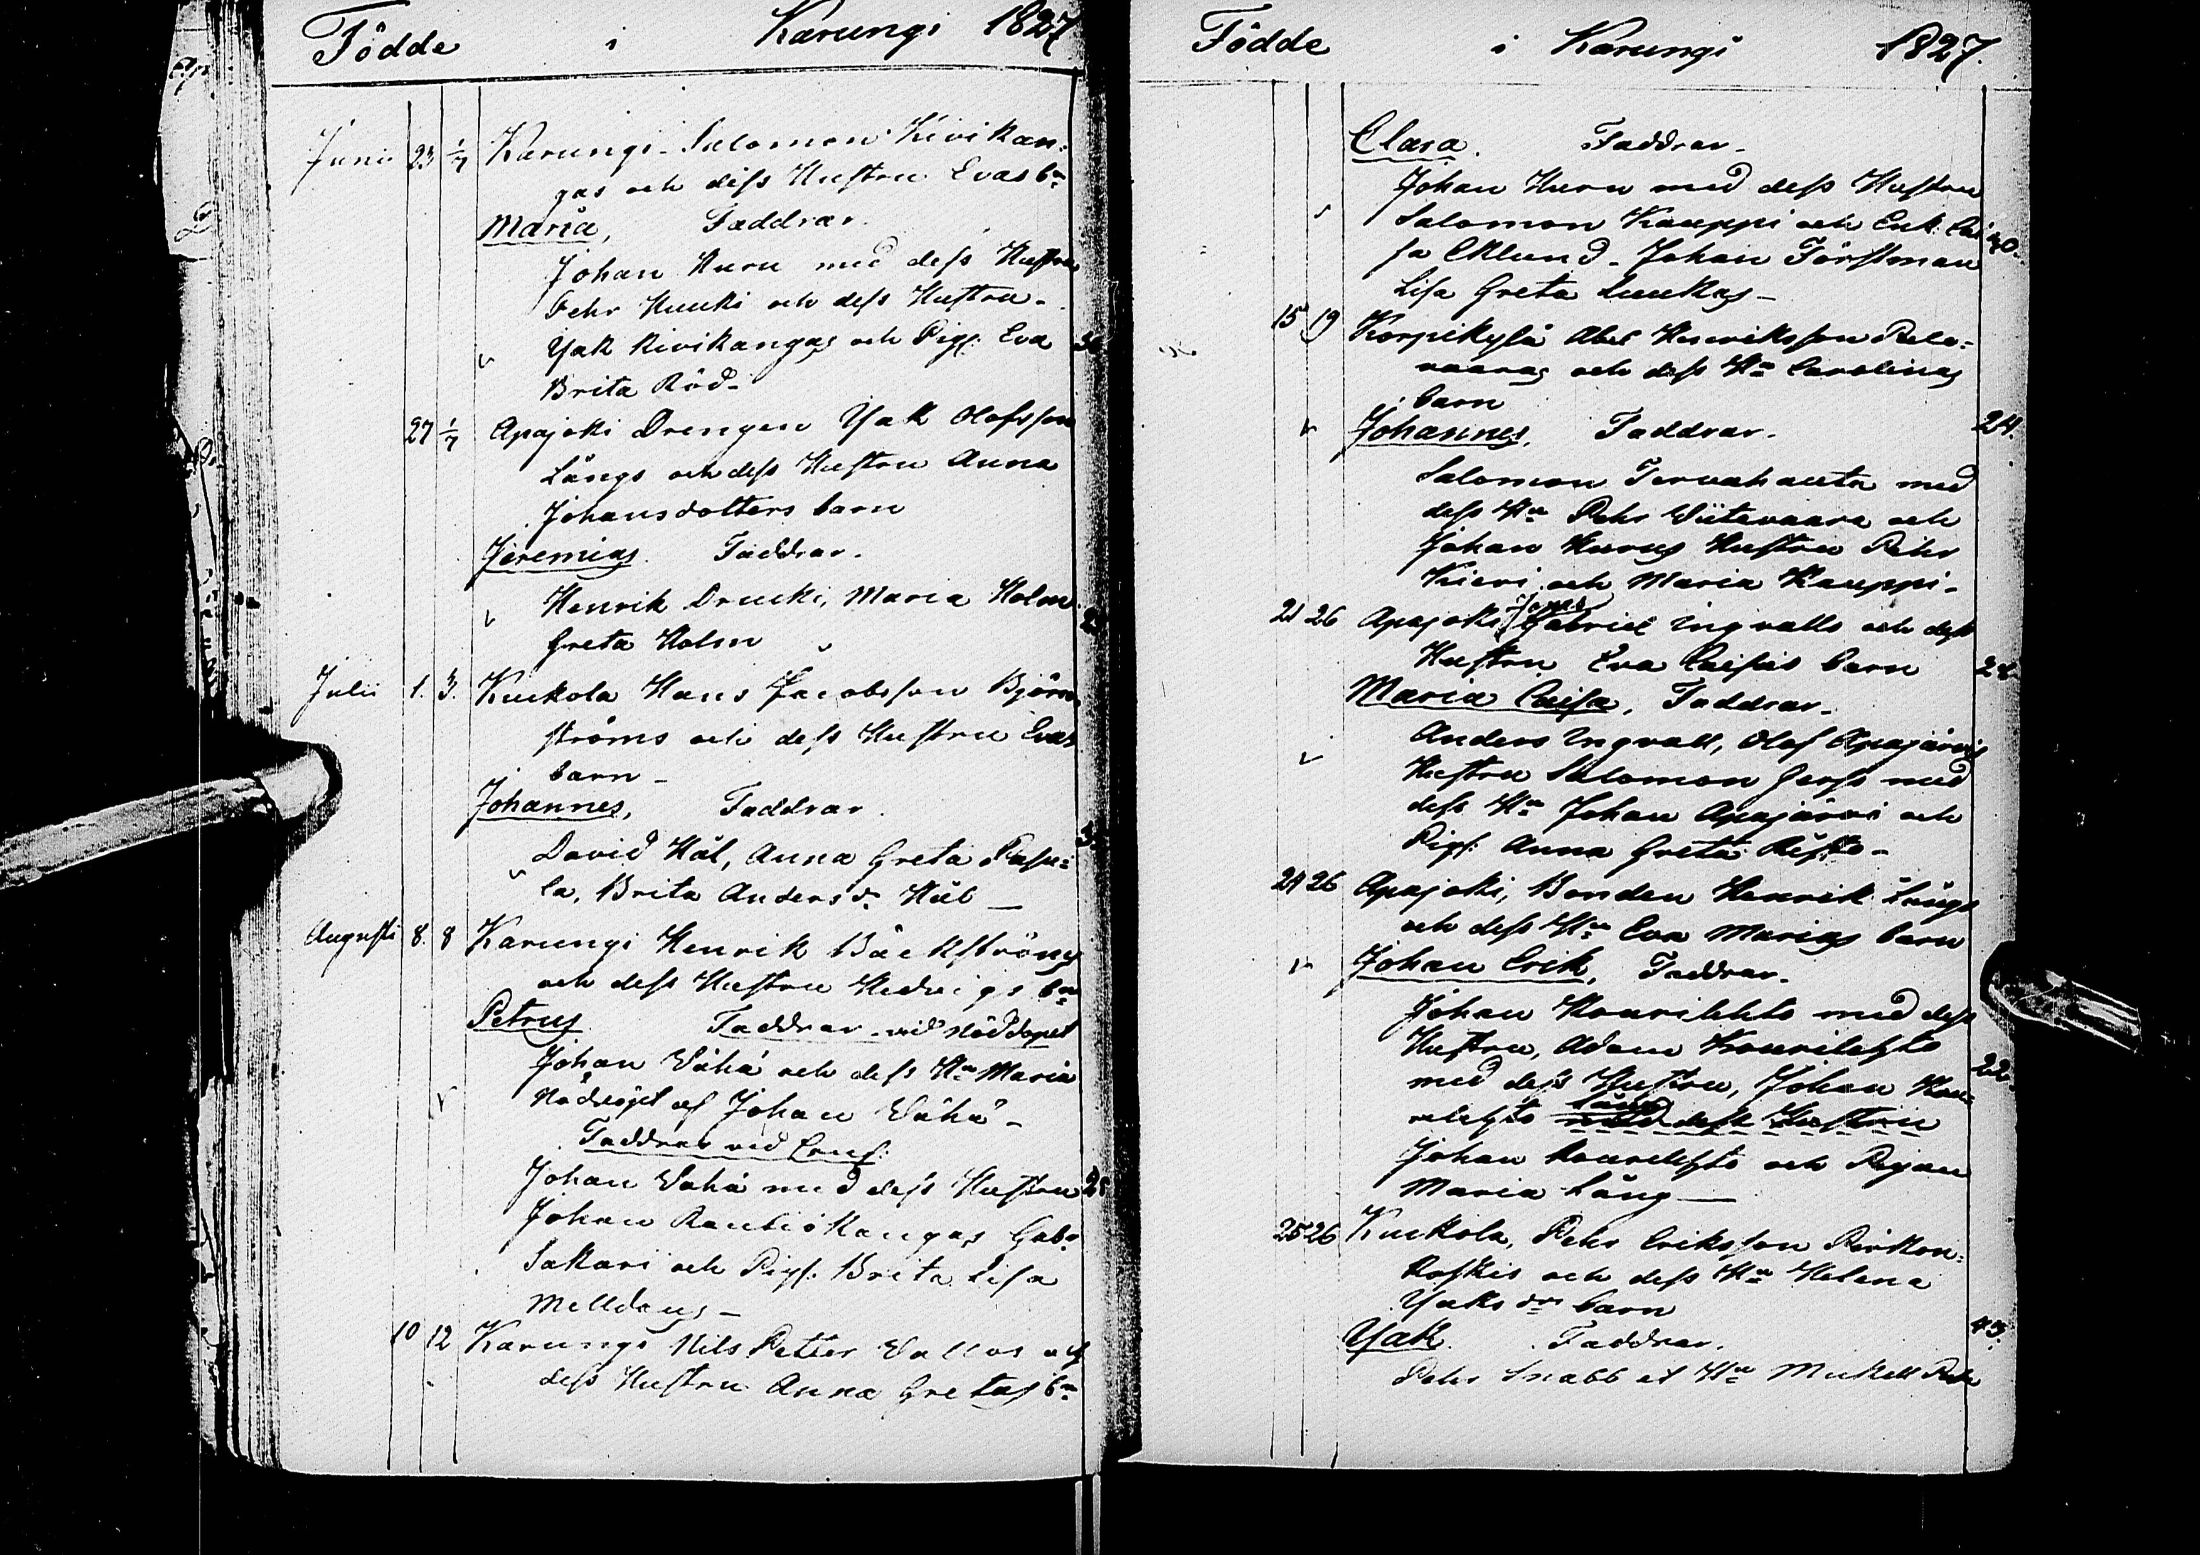 Födde i Karungi 1827
Junii 23 1/7 Karungi Salomon Kivikan-
gas och dess Hustru Evas bn
Maria, Faddrar.
Johan Huru med dess Hustru
Pehr Huuki och dess Hustru -
Yak Kivikangas och Pig. Eva
Brita Röd -
27 1/7 Apajoki Drengen Yak Olofsson
Långs och dess Hustru Anna
Johansdotters barn
Jeremias. Faddrar.
Henrik Drucki, Maria Holm
Greta Holm
Julii 1. 3. Kuckola Hans Jacobsson Björn
ströms och dess Hustru Evas
barn -
Johannes, Faddrar
David Häl, Anna Greta
la, Brita Anders dr
Augusti 8. 8 Karungi Henrik Bäckströms
och dess Hustru Hedvigs bn
Petrus Faddrar vid Nöddopet
Johan Vähä och dess Hu Maria
Nöddöpt af Johan Vähä -
Faddrar vid
Johan Vähä med dess Hustru 28
Johan Rautiokangas Gabr
Sakari och Pig. Brita Lisa
10 12 Karungi Nils Petter och
dess Hustru Anna Gretas bn
Födde i Karungi 1827.
Clara. Faddrar -
Johan Huru med dess Hustru
Salomon Kauppi och Enk. Cai 40.
sa Eklund - Johan Förstman
Lisa Greta Luukas -
15 19 Korpikylä Abel Henriksson Pelo-
vaaras och dess Hu Carolinas
barn
Johannes, Faddrar. 24.
Salomon Tervahauta med
dess Hu Pehr Viitavaara och
Johan Hurus Hustru Pehr
Kieri och Maria Kauppi -
21 26 Apajoki Gabriel Ingvalls och dess
Hustru Eva Caisas barn
Maria Caisa, Faddrar -
Anders Ingvall, Olof Apajärvis
Hustru Salomon med
dess Hu Johan Apajärvi och
Pig. Anna Greta
24 26 Apajoki, Bonden Henrik Långs
och dess Hu Eva Marias barn
Johan Erik, Faddrar -
Johan Kourilehto med dess
Hustru, Adam Kourilehto 22
med dess Hustru, Johan Kou-
rilehto med dess Hustru
Johan Kourilehto och Pigan
Maria Lång -
25 26 Kuckola, Pehr Eriksson
och dess Hu Helena
Yaks dr barn
Yak. Faddrar. 43.
Pehr Snabb et Hu Mickell Pehr